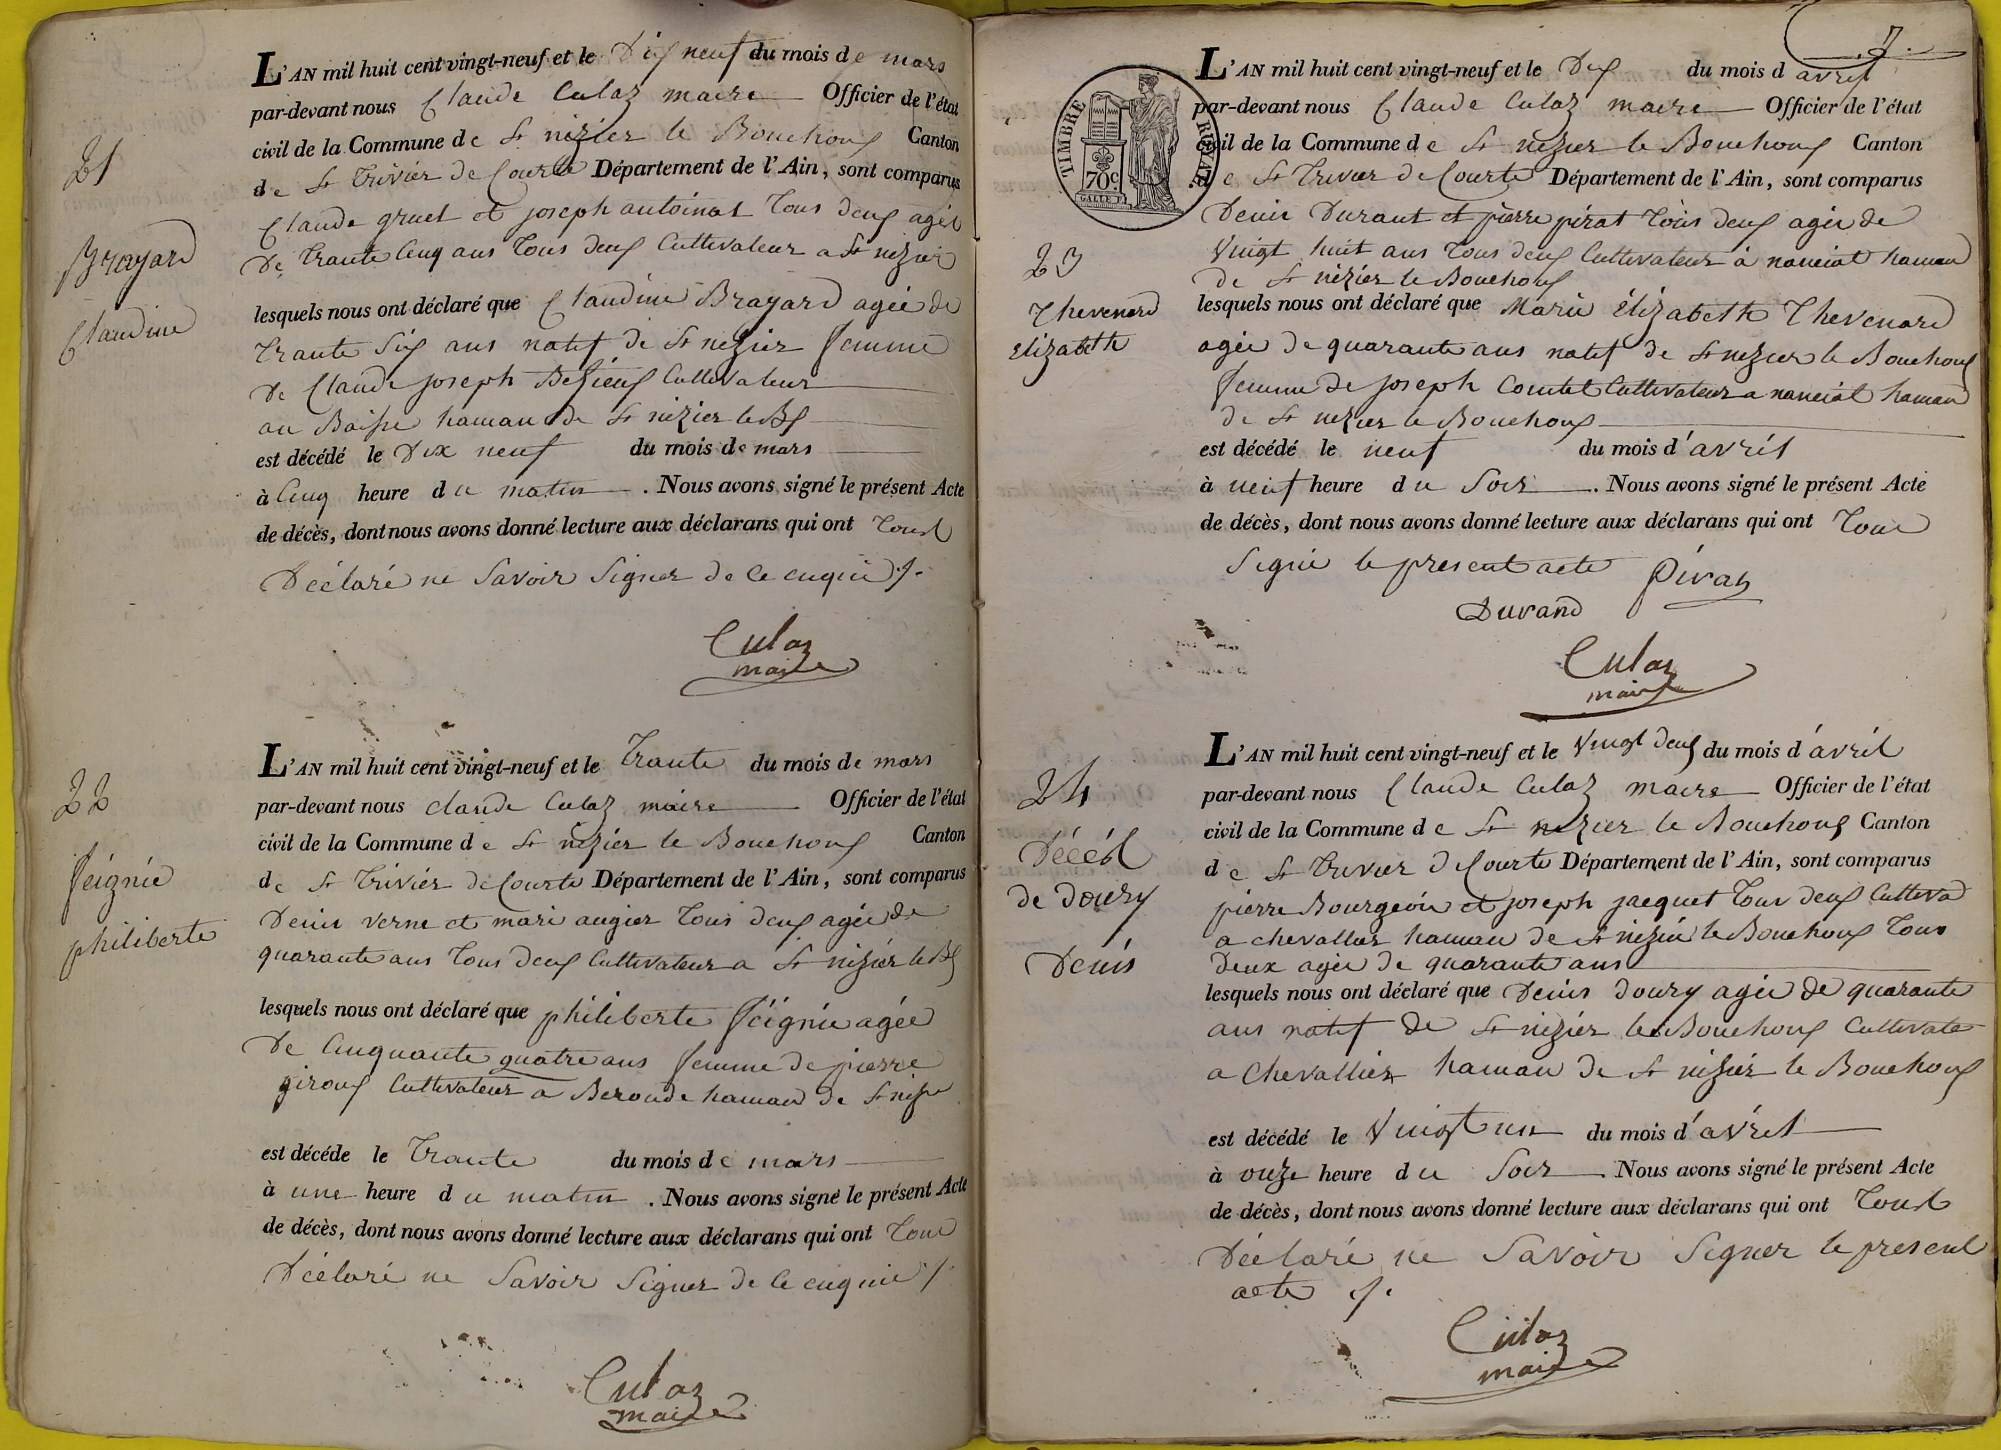 21
Brayard
Claudine
L'AN mil huit cent vingt-neuf et le Dix neuf du mois de mars
par-devant nous Claude Culaz maire Officier de l'état
civil de la Commune de St nizier le Bouchoux Canton
de St Trivier de Courte Département de l'Ain, sont comparus
Claude gruet et joseph antoinat Tous deux agés
De Trante Cinq ans Tous deux Cultivateur a St nizier
lesquels nous ont déclaré que Claudine Brayard agée de
Trante Six ans natif de St nizier femme
De Claude joseph Cultivateur
au haman de St nizier le Bx
est décédé le Dix neuf du mois de mars
à Cinq heure du matin. Nous avons signé le présent Acte
de décès, dont nous avons donné lecture aux déclarans qui ont Tous
Déclaré ne Savoir Signer de ce enquis /.
Culaz
maire
22
feignie
philiberte
L'AN mil huit cent vingt-neuf et le Trante du mois de mars
par-devant nous claude Culaz maire Officier de l'état
civil de la Commune de St nizier le Bouchoux Canton
de St Trivier de Courte Département de l'Ain, sont comparus
Denis verne et mari augier Tous deux agée de
quarante ans Tous deux Cultivateur a St nizier le Bx
lesquels nous ont déclaré que philiberte féignie agée
De Cinquante quatre ans femme de pierre
giroux Cultivateur a Beronde haman de St nizie
est décéde le Trante du mois de mars
à une heure du matin. Nous avons signé le présent Acte
de décès, dont nous avons donné lecture aux déclarans qui ont Tous
Déclaré ne Savoir Signer de ce enquis /.
Culaz
maire
7.
TIMBRE ROYAL
70c.
23
Thevenard
Elizabethe
L'AN mil huit cent vingt-neuf et le Dix du mois d'avril
par-devant nous Claude Culaz maire Officier de l'état
civil de la Commune de St nizier le Bouchoux Canton
de St Trivier de Courte Département de l'Ain, sont comparus
Denis Durant et pierre pirat Tous deux agée de
Vingt huit ans Tous deux Cultivateur à nanciat haman
de St nizier le Bouchoux
lesquels nous ont déclaré que Marie Elizabethe Thevenard
agée de quarante ans natif de St nizier le Bouchoux
femme de joseph Comtet Cultivateur a nanciat haman
de St nizier le Bouchoux
est décédé le neuf du mois d'avril
à neuf heure du Soir. Nous avons signé le présent Acte
de décès, dont nous avons donné lecture aux déclarans qui ont Tous
Signé le present acte Pirat
Durand
Culaz
maire
24
Décéd
de Doury
Denis
L'AN mil huit cent vingt-neuf et le Vingt deux du mois d'avril
par-devant nous Claude Culaz maire Officier de l'état
civil de la Commune de St nizier le Bouchoux Canton
de St Trivier de Courte Département de l'Ain, sont comparus
pierre Bourgeois et joseph jacquet Tous deux Cultiva
a chevallier haman de St nizier le Bouchoux Tous
deux agée de quarante ans
lesquels nous ont déclaré que Denis Doury agée de quarante
ans natif de St nizier le Bouchoux Cultivate
a Chevallier haman de St nizier le Bouchoux
est décédé le Vingt un du mois d'avril
à onze heure du Soir. Nous avons signé le présent Acte
de décès, dont nous avons donné lecture aux déclarans qui ont Tous
Déclaré ne Savoir Signer le present
acte /.
Culaz
maire